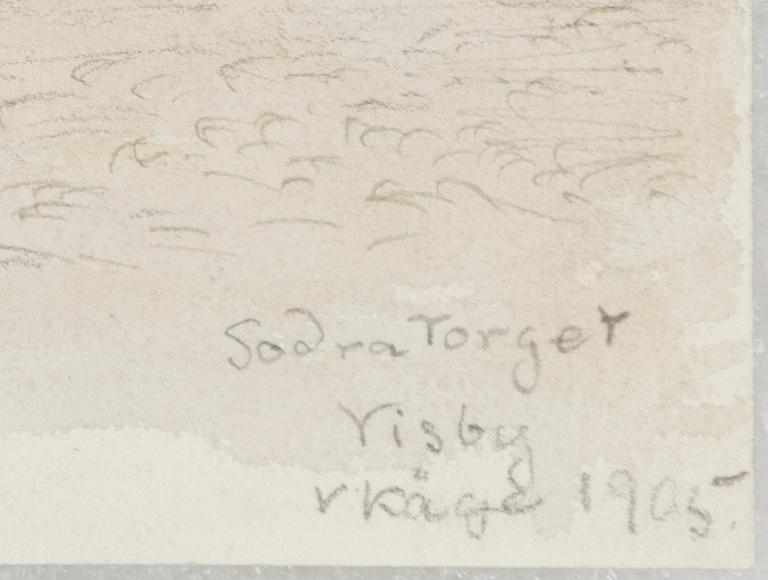 Södra Torget
Visby
V Kåge 1905.